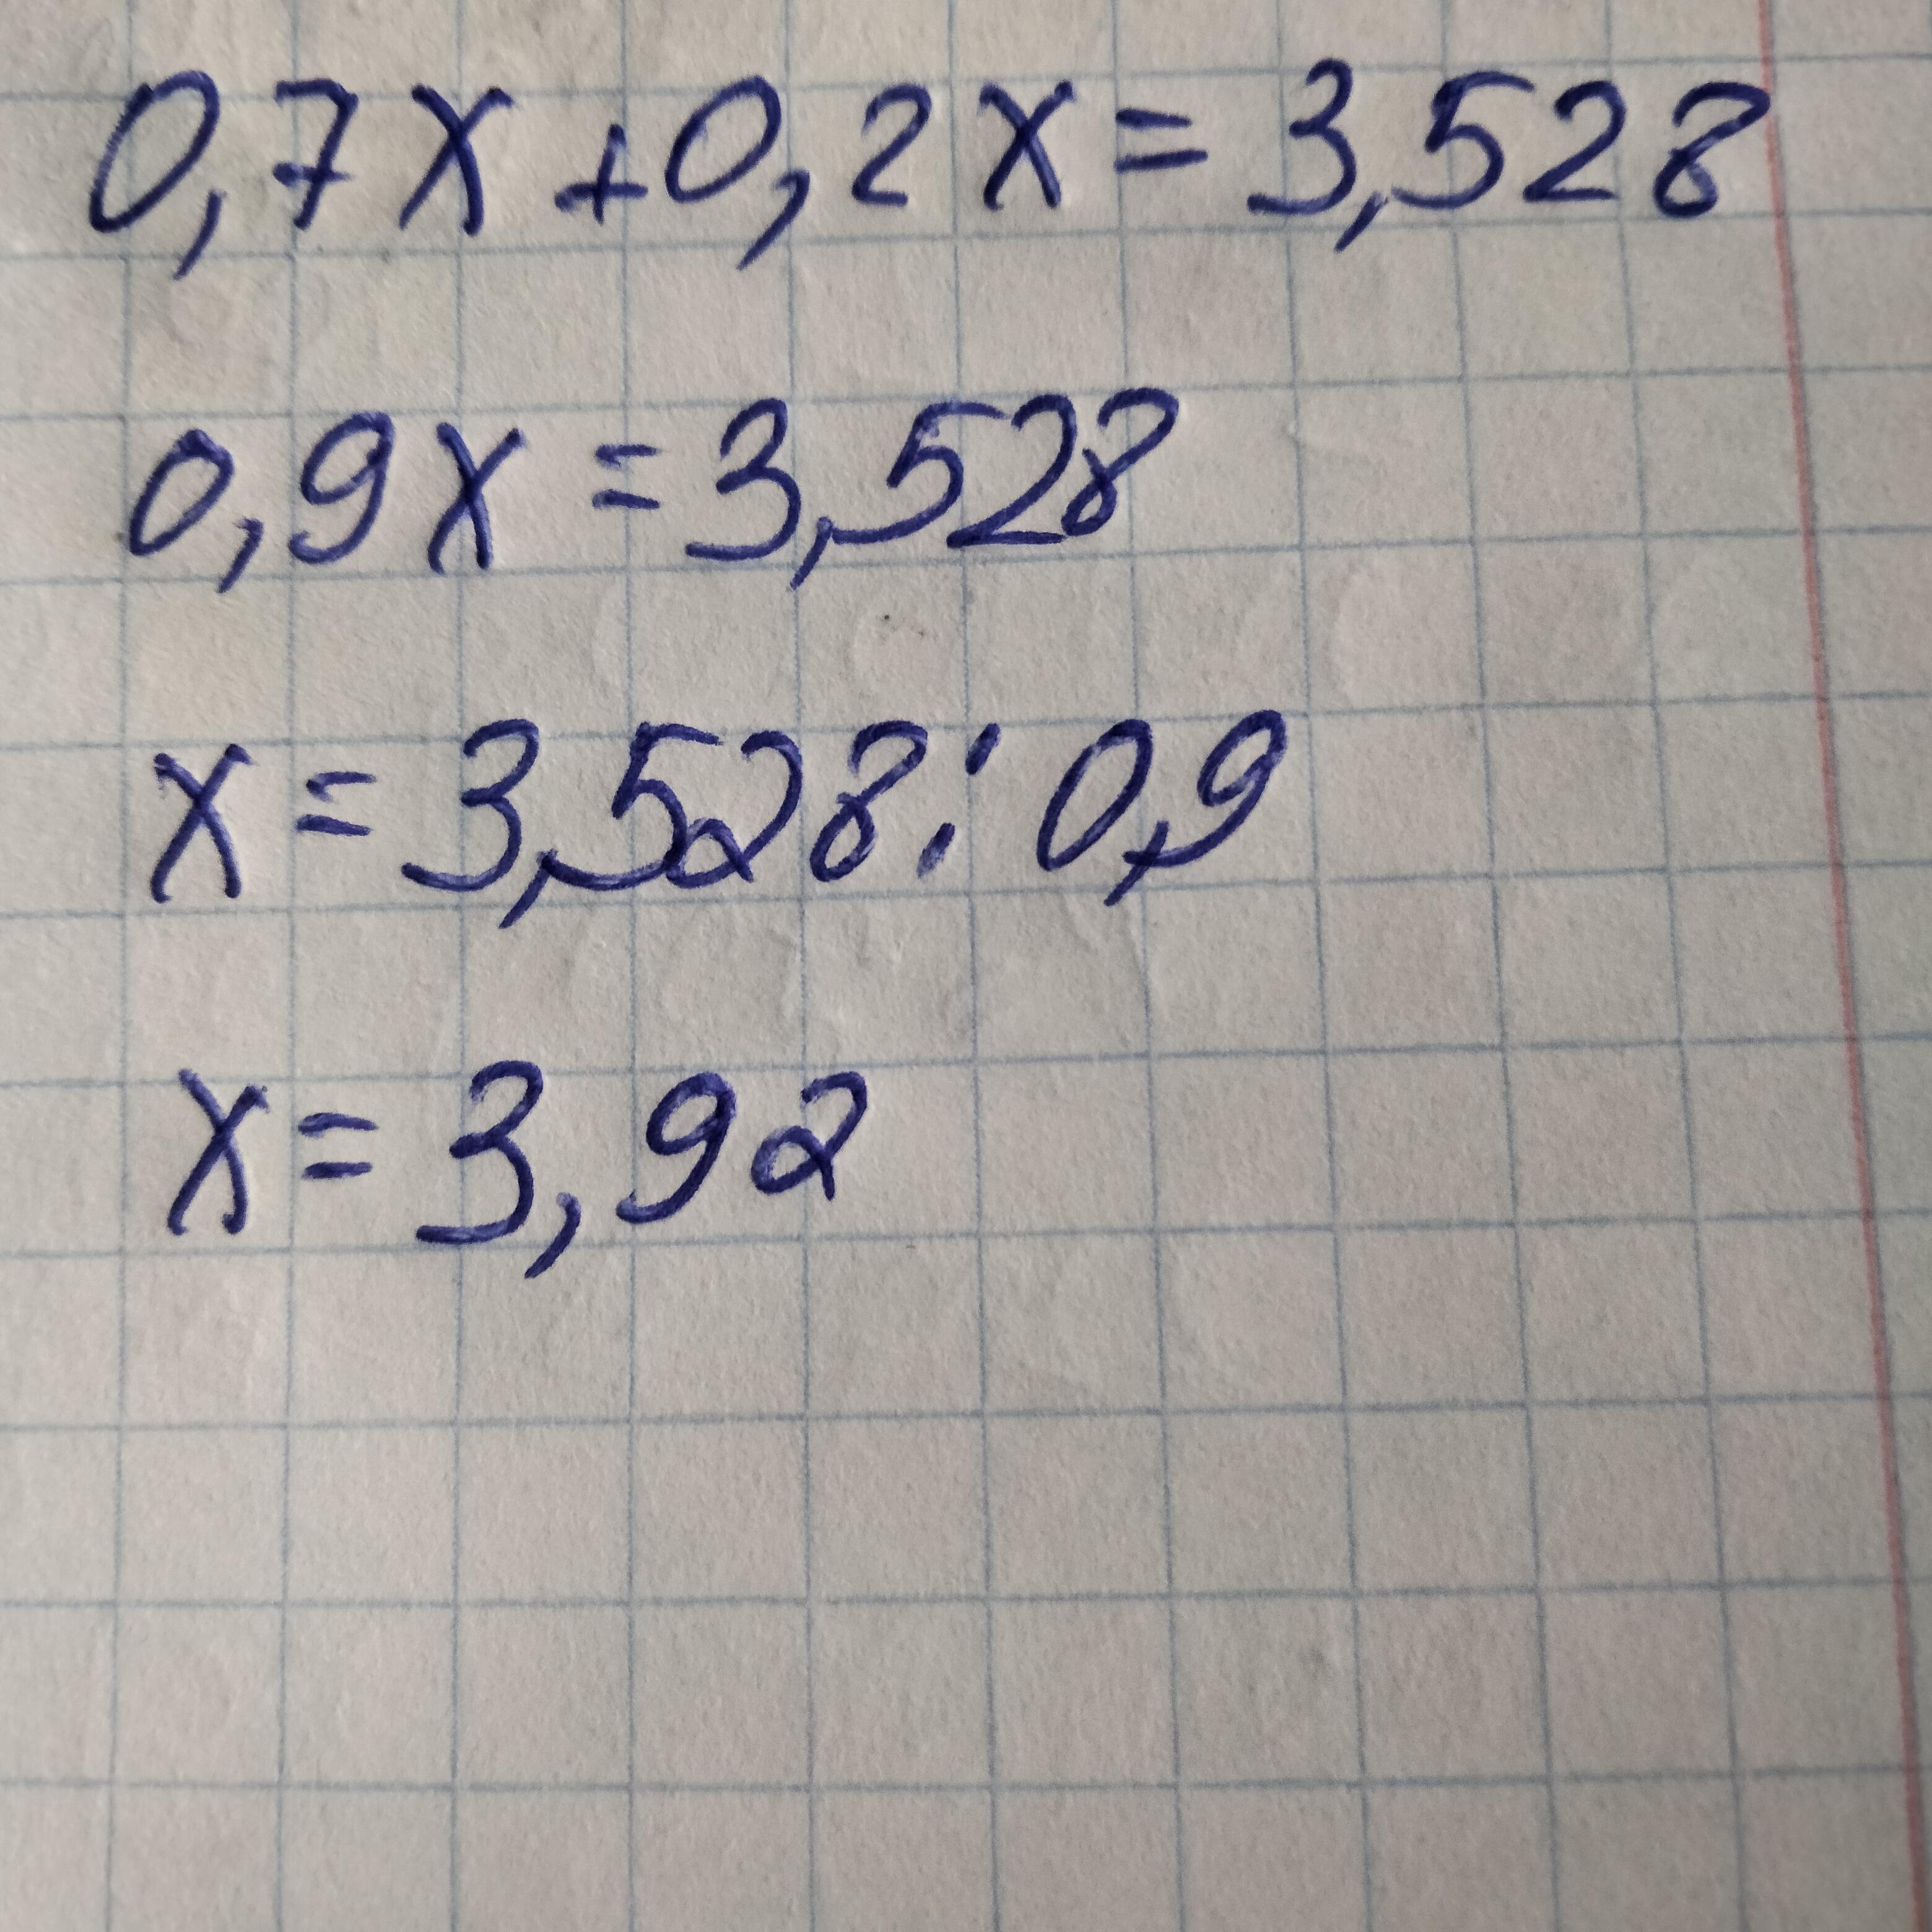 0,7x+0,2x=3,528
0,9x=3,528
x=3,528:0,9
x=3,92